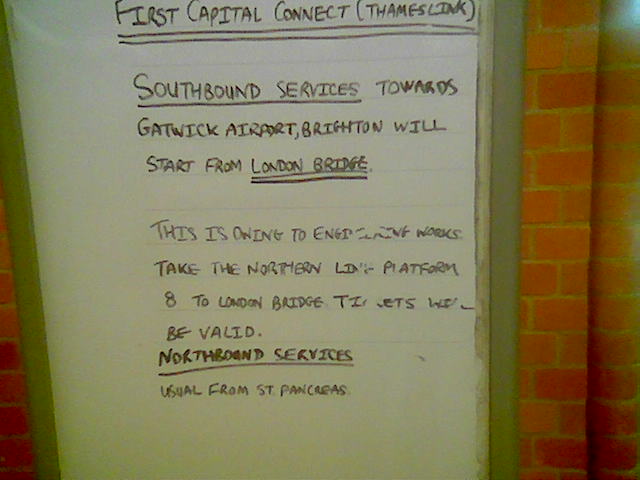 FIRST CAPITAL CONNECT (THAMESLINK)
SOUTHBOUND SERVICES TOWARDS
GATWICK AIRPORT, BRIGHTON WILL
START FROM LONDON BRIDGE.
THIS IS OWING TO ENGINEERING WORKS
TAKE THE NORTHERN LINE PLATFORM
8 TO LONDON BRIDGE TICKETS WILL
BE VALID.
NORTHBOUND SERVICES
USUAL FROM ST. PANCREAS